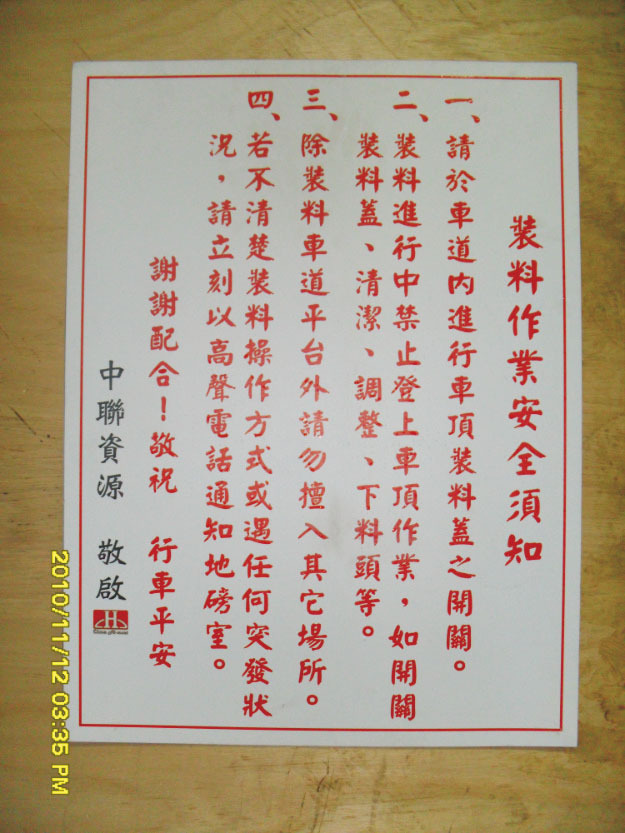 裝料作業安全須知
一、請於車道內進行車頂裝料蓋之開關。
二、裝料進行中禁止登上車頂作業，如開關
裝料蓋、清潔、調整、下料頭等。
三、除裝料車道平台外請勿擅入其它場所。
四、若不清楚裝料操作方式或遇任何突發狀
況，請立刻以高聲電話通知地磅室。
謝謝配合！敬祝 行車平安
中聯資源 敬啟
2010/11/12 03:35 PM